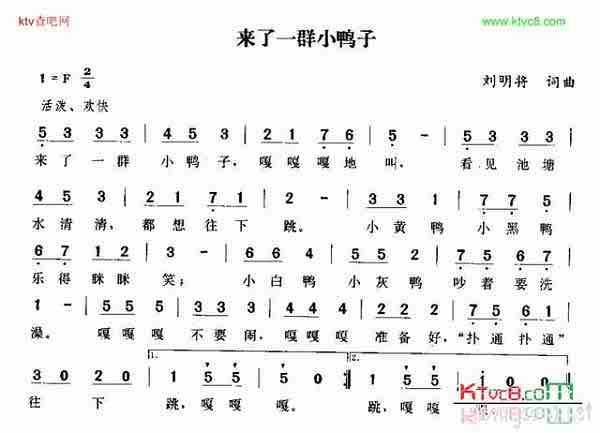 ktv查吧网
www.ktvc8.com
来了一群小鸭子
1=F 2/4
刘明将 词曲
活泼、欢快
5 3 3 3 | 4 5 3 | 2 1 7 6 | 5 - | 5 3 3 3 |
来了一群 小鸭子,嘎嘎嘎地叫。 看见池塘
4 5 3 | 2 1 7 1 | 2 - | 3 3 1 | 7 7 5 |
水清清,都想往下跳。 小黄鸭 小黑鸭
6 7 1 2 | 3 - | 6 6 4 | 5 5 2 | 5 7 6 7 |
乐得眯眯笑; 小白鸭 小灰鸭 吵着要洗
1 - | 3 3 3 | 4 5 3 | 2 2 2 | 4 4 2 | 7 5 6 1 |
澡。 嘎嘎嘎 不要闹,嘎嘎嘎 准备好,“扑通扑通”
1. 2.
3 0 2 0 | 1 5 5 | 5 0 | 1 5 5 |
往 下 跳,嘎嘎 嘎。 跳,嘎嘎
KTvc8.com